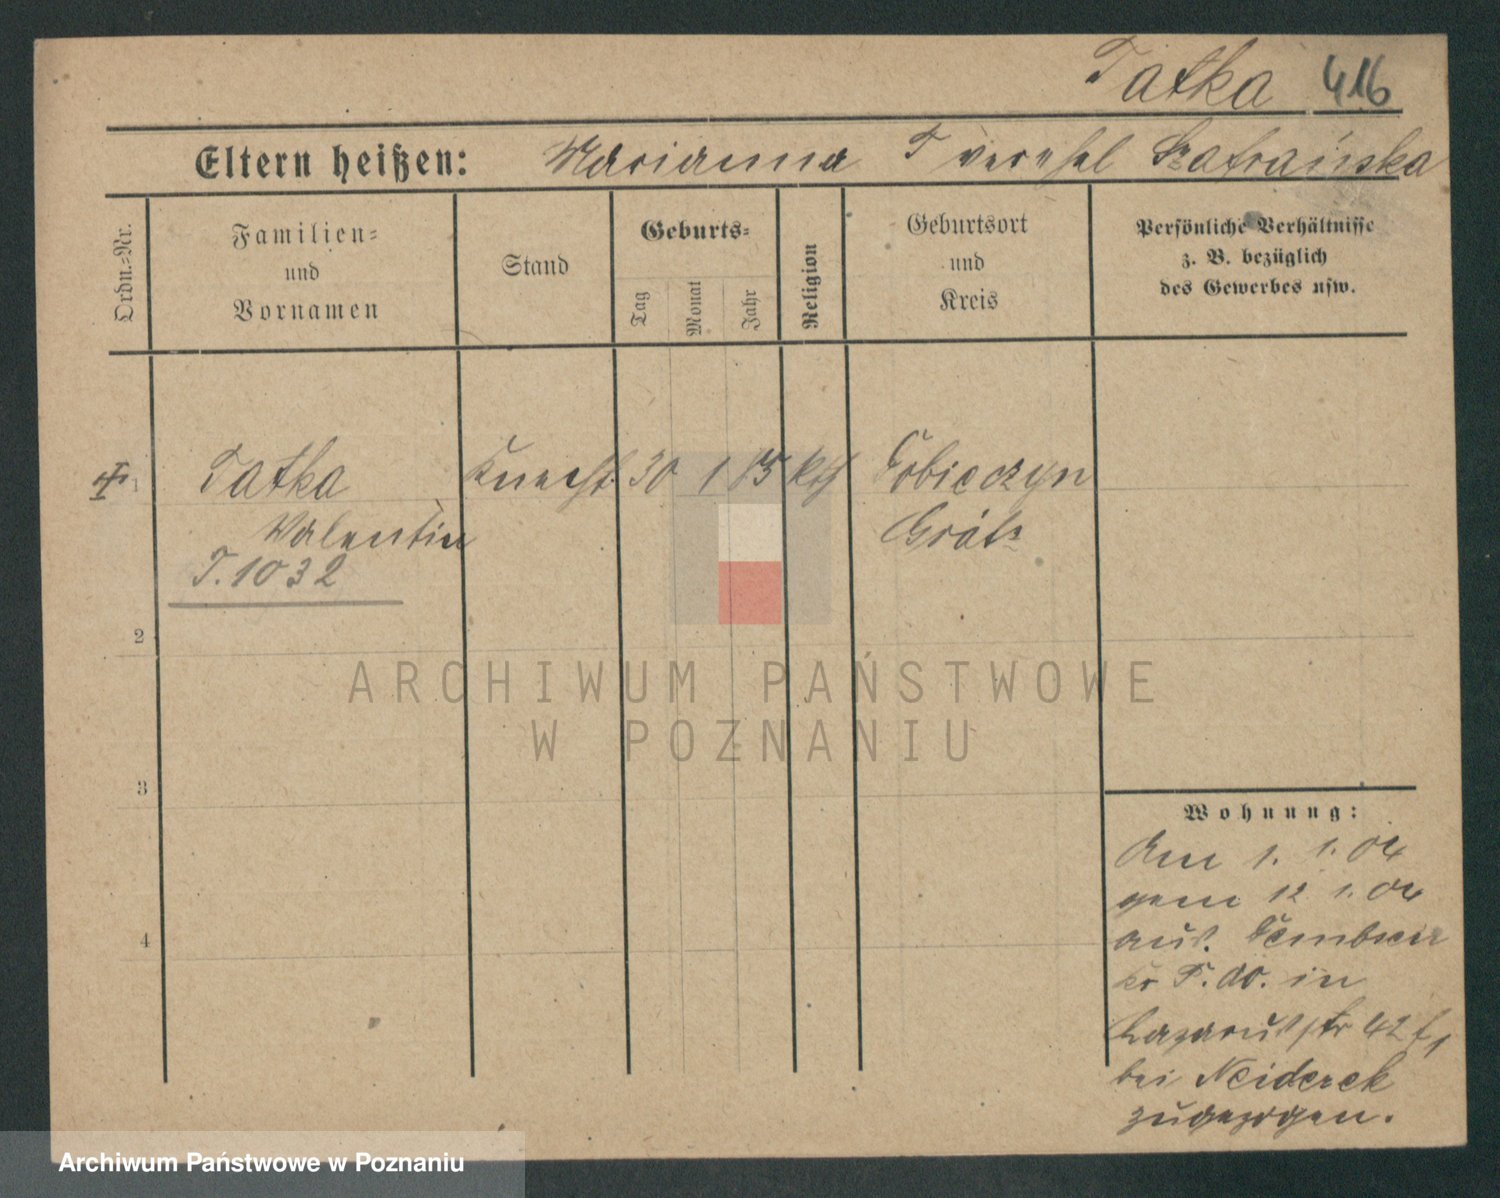 Tatka 416
Eltern heißen: Marianna T verehel Szafrańska
Ordn.-Nr.
Familien- und Vornamen
Stand
Geburts-
Tag
Monat
Jahr
Religion
Geburtsort und Kreis
Persönliche Verhältnisse
z. B. bezüglich
des Gewerbes usw.
1 Tatka Knecht 30 1 85 kth
Valentin Grätz
T. 1032
2
3
4
Wohnung:
Am 1. 1. 04
gem 12 1. 04
aus.
in
Lazarusstr 42
bei Neiderek
zugezogen.
ARCHIWUM PAŃSTWOWE
W POZNANIU
Archiwum Państwowe w Poznaniu